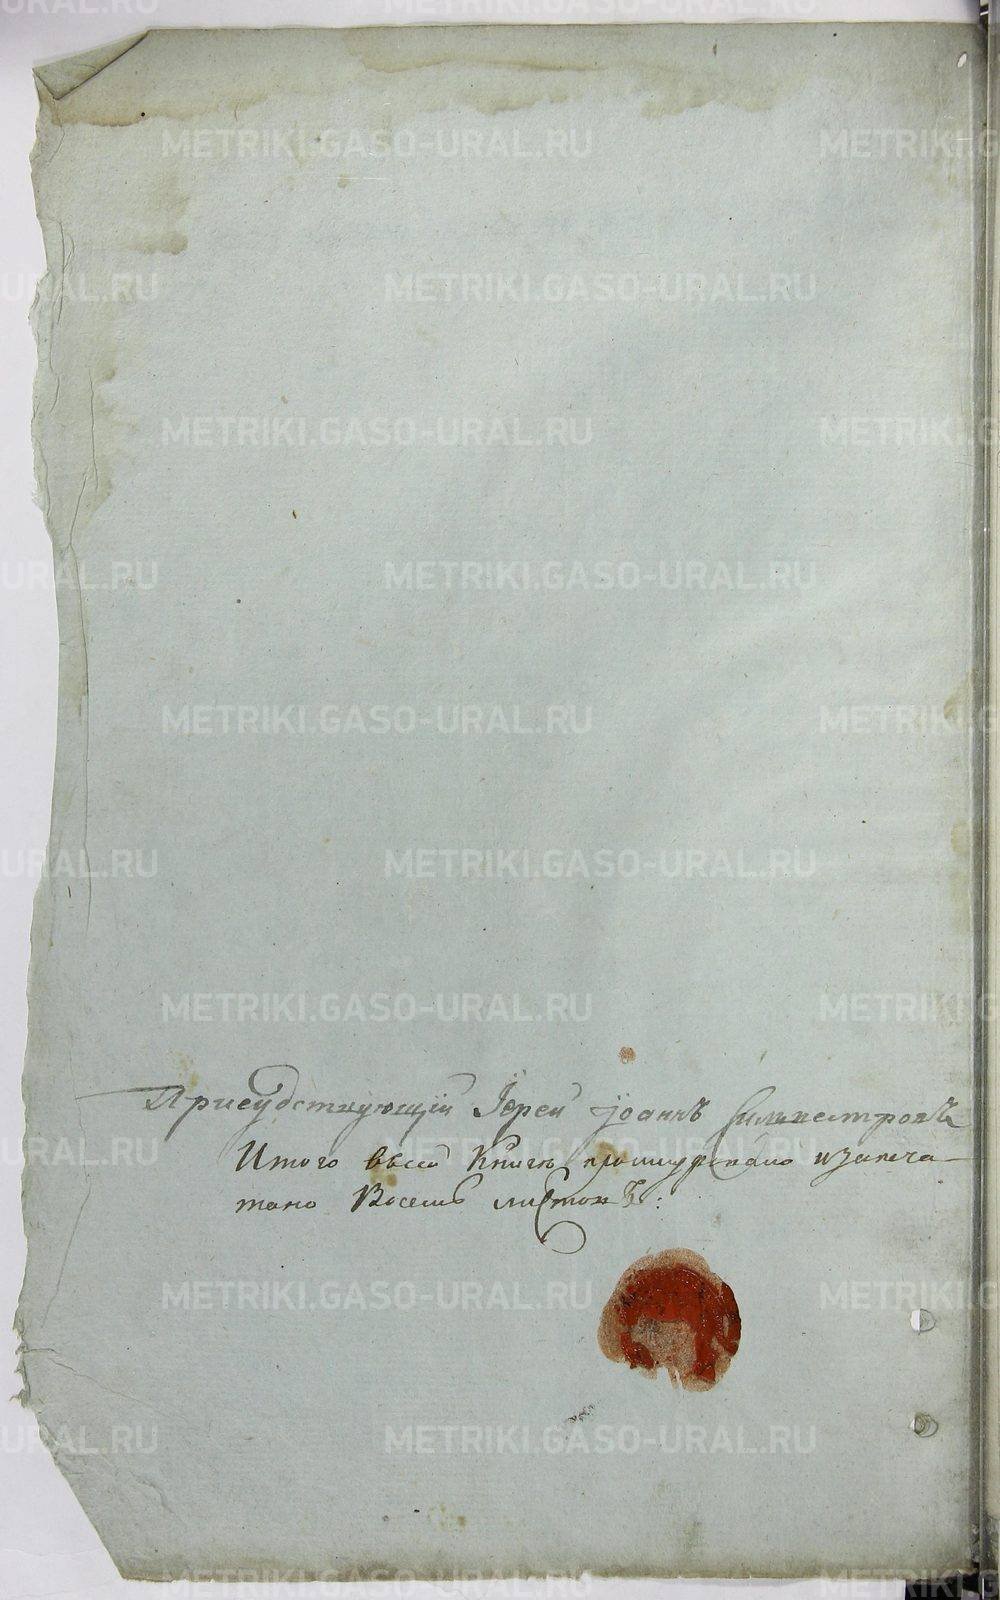 Присудствующій Іерей Іоаннъ Сильвестровъ
Итого всей книге прошнуровано изапеча
тано Восемь листовъ:
METRIKI.GASO-URAL.RU